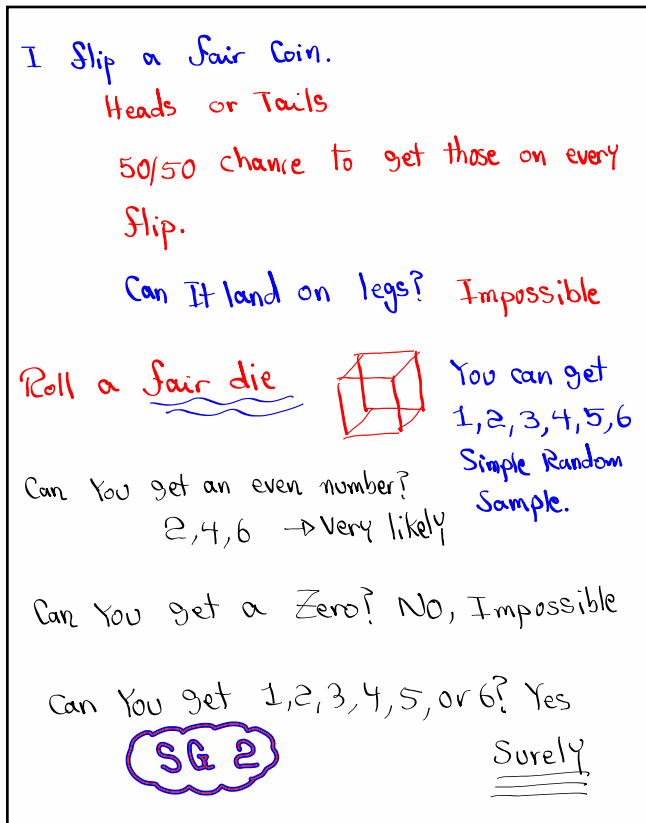 I flip a fair Coin.
Heads or Tails
50/50 chance to get those on every
flip.
Can It land on legs? Impossible
Roll a fair die
You can get
1,2,3,4,5,6
Simple Random
Sample.
Can You get an even number?
2,4,6 → Very likely
Can You get a Zero? No, Impossible
Can You get 1,2,3,4,5, or 6? Yes
Surely
SG 2